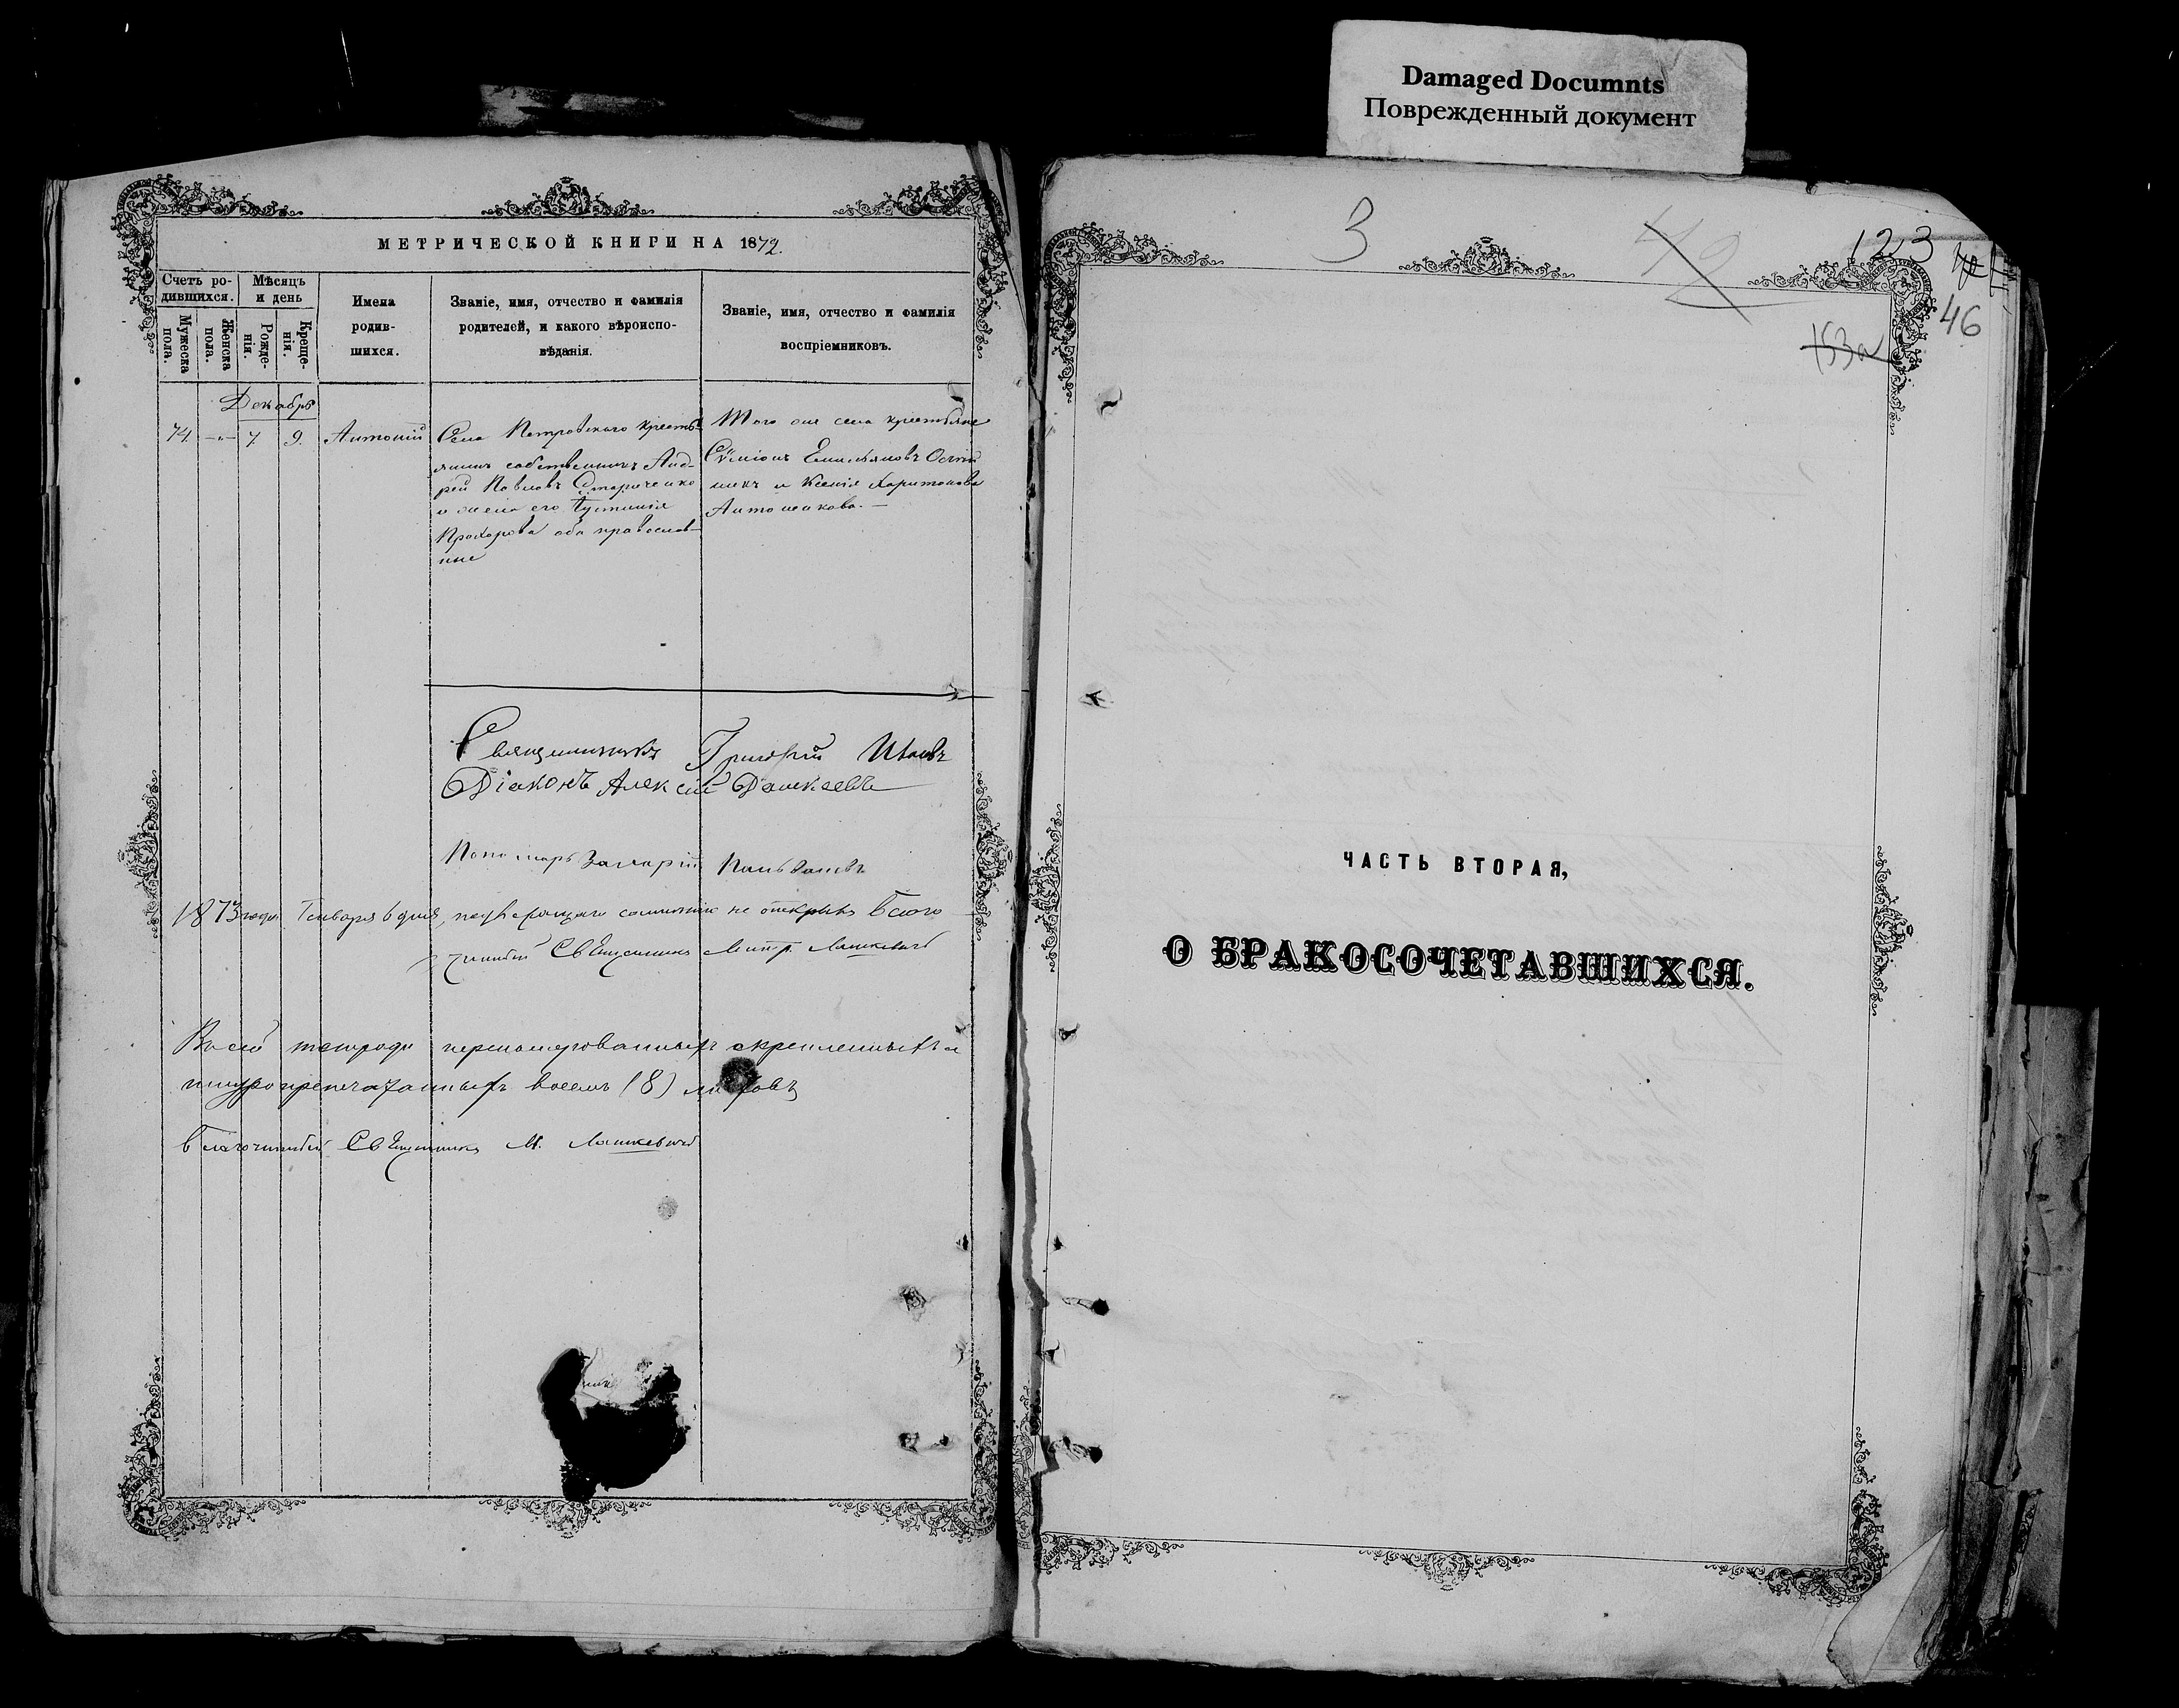 Damaged Documnts
Поврежденный документ
МЕТРИЧЕСКОЙ КНИГИ НА 1872.
Счетъ ро-
дившихся.
Мужеска
пола.
Женска
пола.
Мѣсяцъ
и день
Рожде-
нія.
Креще-
нія.
Имена
родив-
шихся.
Званіе, имя, отчество и фамилія
родителей, и какого вѣроиспо-
вѣданія.
Званіе, имя, отчество и фамилія
воспріемниковъ.
Декабрь
74 -"- 7. 9. Антоній
Села Петровскаго кресть-
янинъ собственникъ Анд-
рей Павловъ Стариченко
и жена его Іустинія
Прохорова оба православ-
ные
Того же села крестьяне
Сѵмеонъ Емильяновъ
и Ксенія Харитонова
Антонікова. —
Священникъ Григорій
Діаконъ Алексій
Пономарь Захарій
1873 года Генваря 6 дня, подлежащаго сомнѣнію не открыто Благо-
чинный Священникъ Митр. Лашкевичъ
Въ сей тетради перенумерованныхъ скрепленныхъ и
шнуропрепечатанныхъ восемь (8) листовъ
Благочинный Священникъ М. Лашкевичъ
3
42
123
46
153а
ЧАСТЬ ВТОРАЯ,
О БРАКОСОЧЕТАВШИХСЯ.